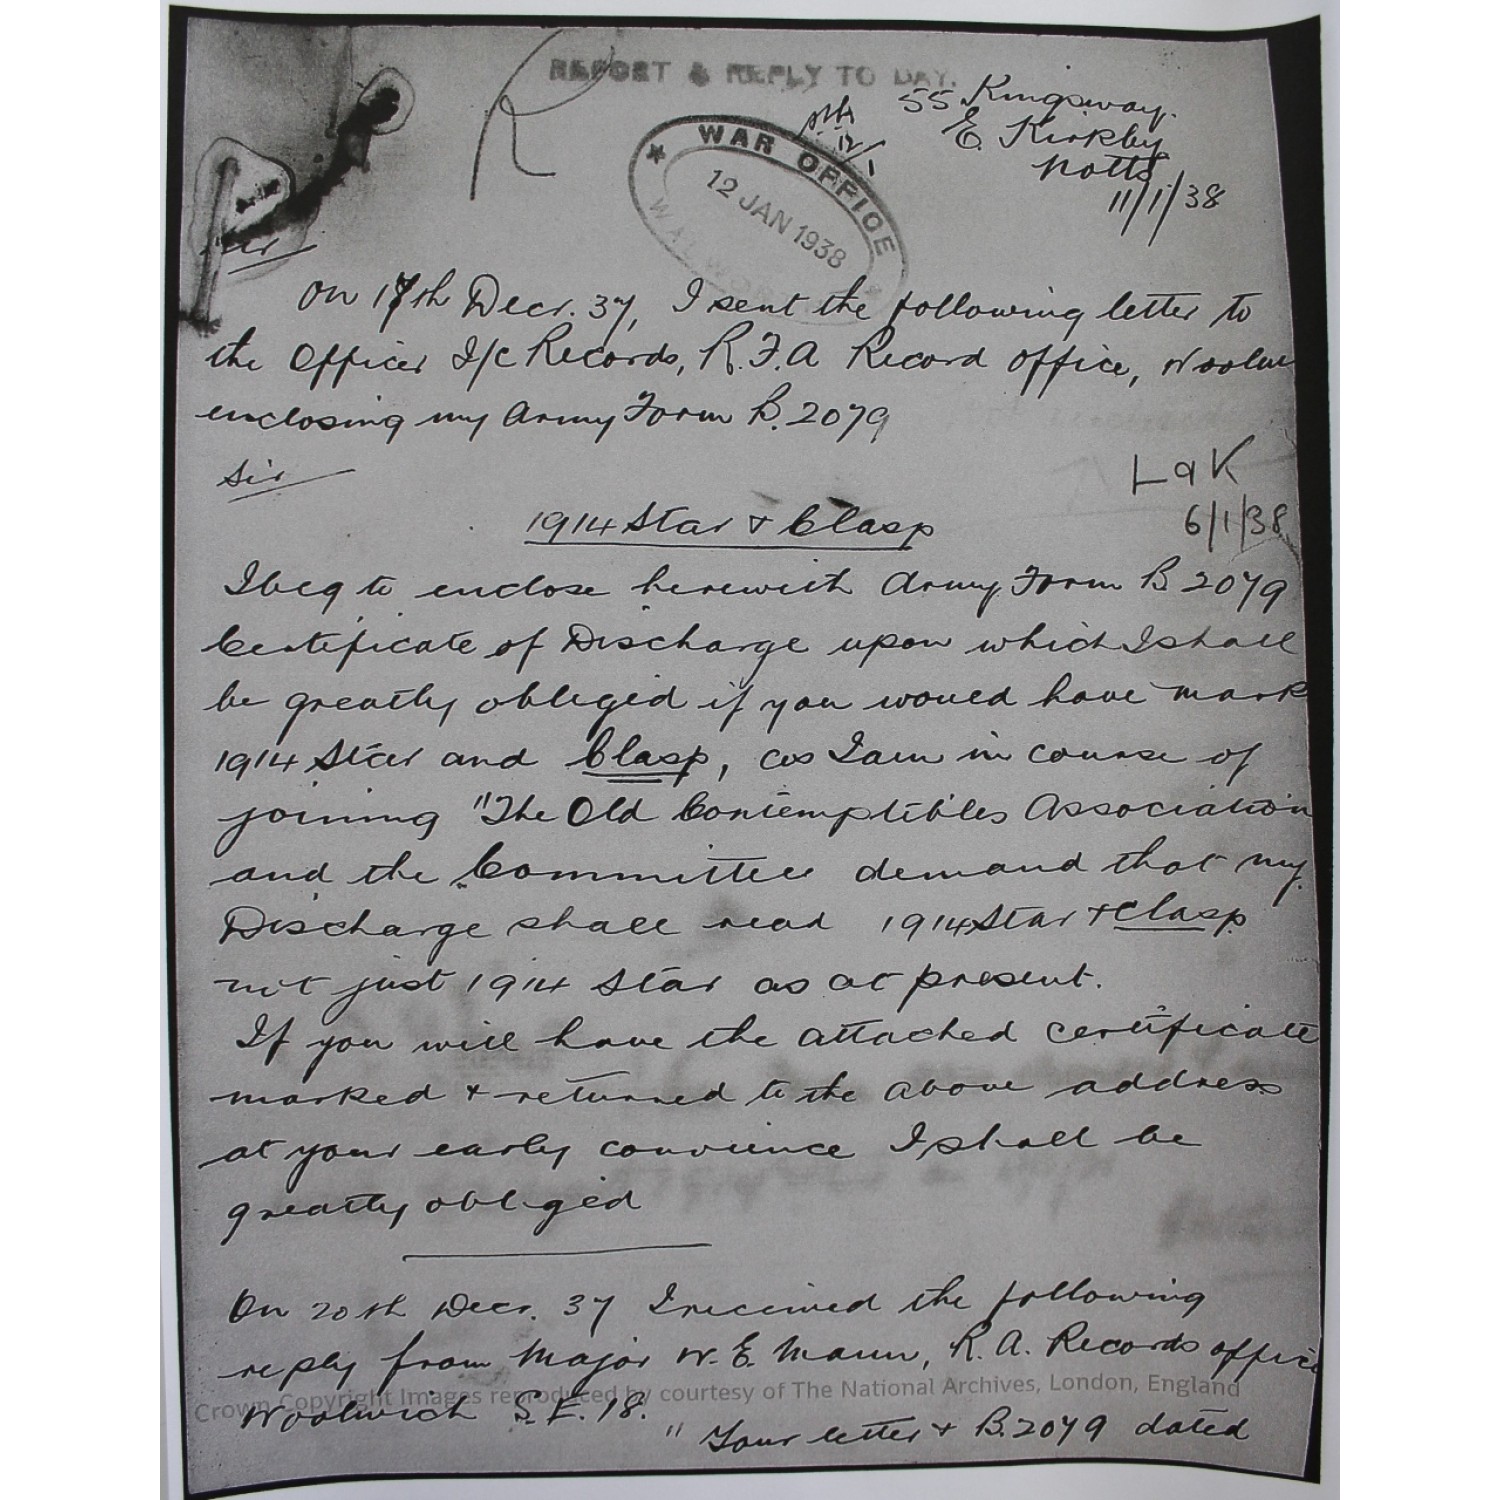 REPORT & REPLY TO DAY.
R
55 Kingsway.
E. Kirkby
Notts
11/1/38
12/1
WAR OFFICE
12 JAN 1938
Sir
On 17th Decr. 37, I sent the following letter to
the Officer I/c Records, R.F.A Record Office, Woolw
enclosing my Army Form B. 2079
Sir
L9K
6/1/38
1914 Star & Clasp
I beg to enclose herewith Army Form B 2079
Certificate of Discharge upon which I shall
be greatly obliged if you would have mark
1914 Star and Clasp, as I am in course of
joining "The Old Contemptibles Association
and the Committee demand that my
Discharge shall read 1914 Star & Clasp
not just 1914 Star as at present.
If you will have the attached certificate
marked & returned to the above address
at your early convience I shall be
greatly obliged
On 20th Decr. 37 I received the following
reply from Major W. E. Mann, R. A. Records Office
Crown Copyright Images reproduced by courtesy of The National Archives, London, England
Woolwich S.E. 18.
"Your letter & B.2079 dated